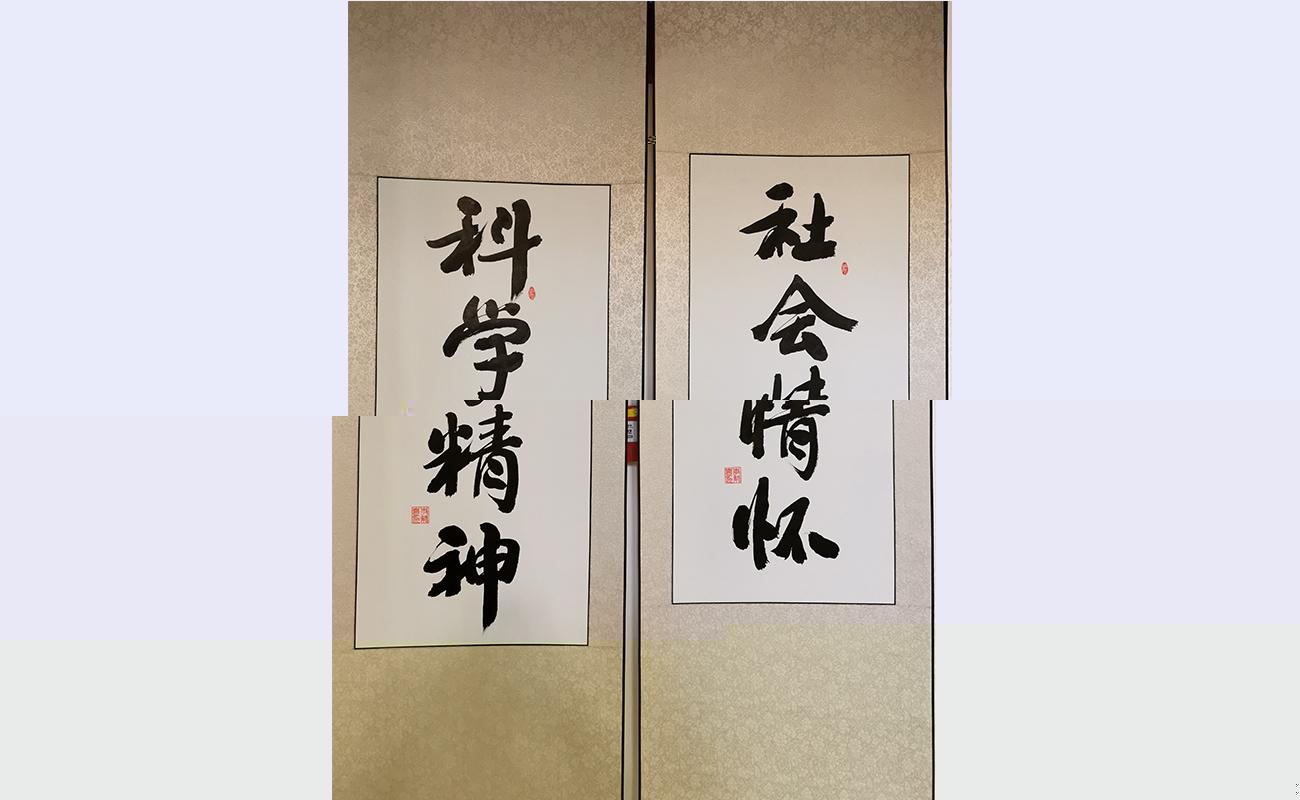 社会情怀
科学精神